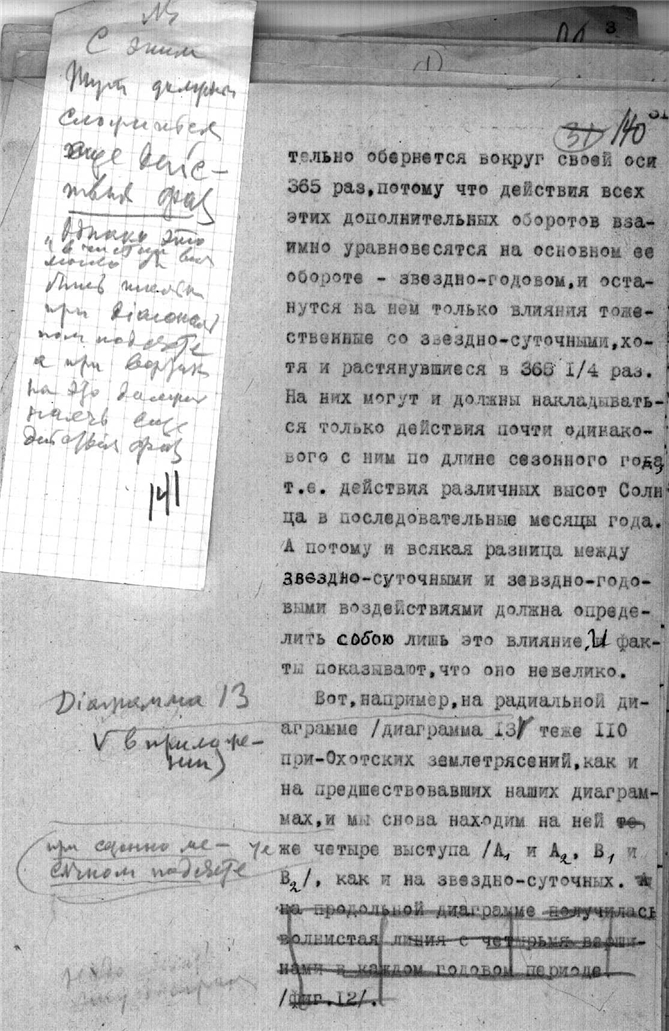 С этим
Тут должны
сложиться
еще дейс-
твия фаз
Однако это
"в чистом ви
могло бы
быть
при
ном подсчете
а при
на это должен
еще
фаз
141
3
31 140
тельно обернется вокруг своей оси
365 раз,потому что действия всех
этих дополнительных оборотов вза-
имно уравновесятся на основном ее
обороте - звездно-годовом,и оста-
нутся на нем только влияния тоже-
ственные со звездно-суточными,хо-
тя и растянувшиеся в 365 I/4 раз.
На них могут и должны накладывать-
ся только действия почти одинако-
вого с ним по длине сезонного года,
т.е. действия различных высот Солн
ца в последовательные месяцы года.
А потому и всякая разница между
звездно-суточными и зевздно-годо-
выми воздействиями должна опреде-
лить собою лишь это влияние, и фак-
ты показывают,что оно невелико.
Вот,например,на радиальной ди-
Диаграмма 13
аграмме /диаграмма I3/ теже II0
V в приложе-
нии
при-Охотских землетрясений,как и
на предшествовавших наших диаграм-
мах,и мы снова находим на ней те-
же четыре выступа /А1 и А2, В1 и
при
сячном подсчете
В2/, как и на звездно-суточных. А
на продольной диаграмме получилась
волнистая линия с четырьмя верши-
нами в каждом годовом периоде
/фиг.I2/.